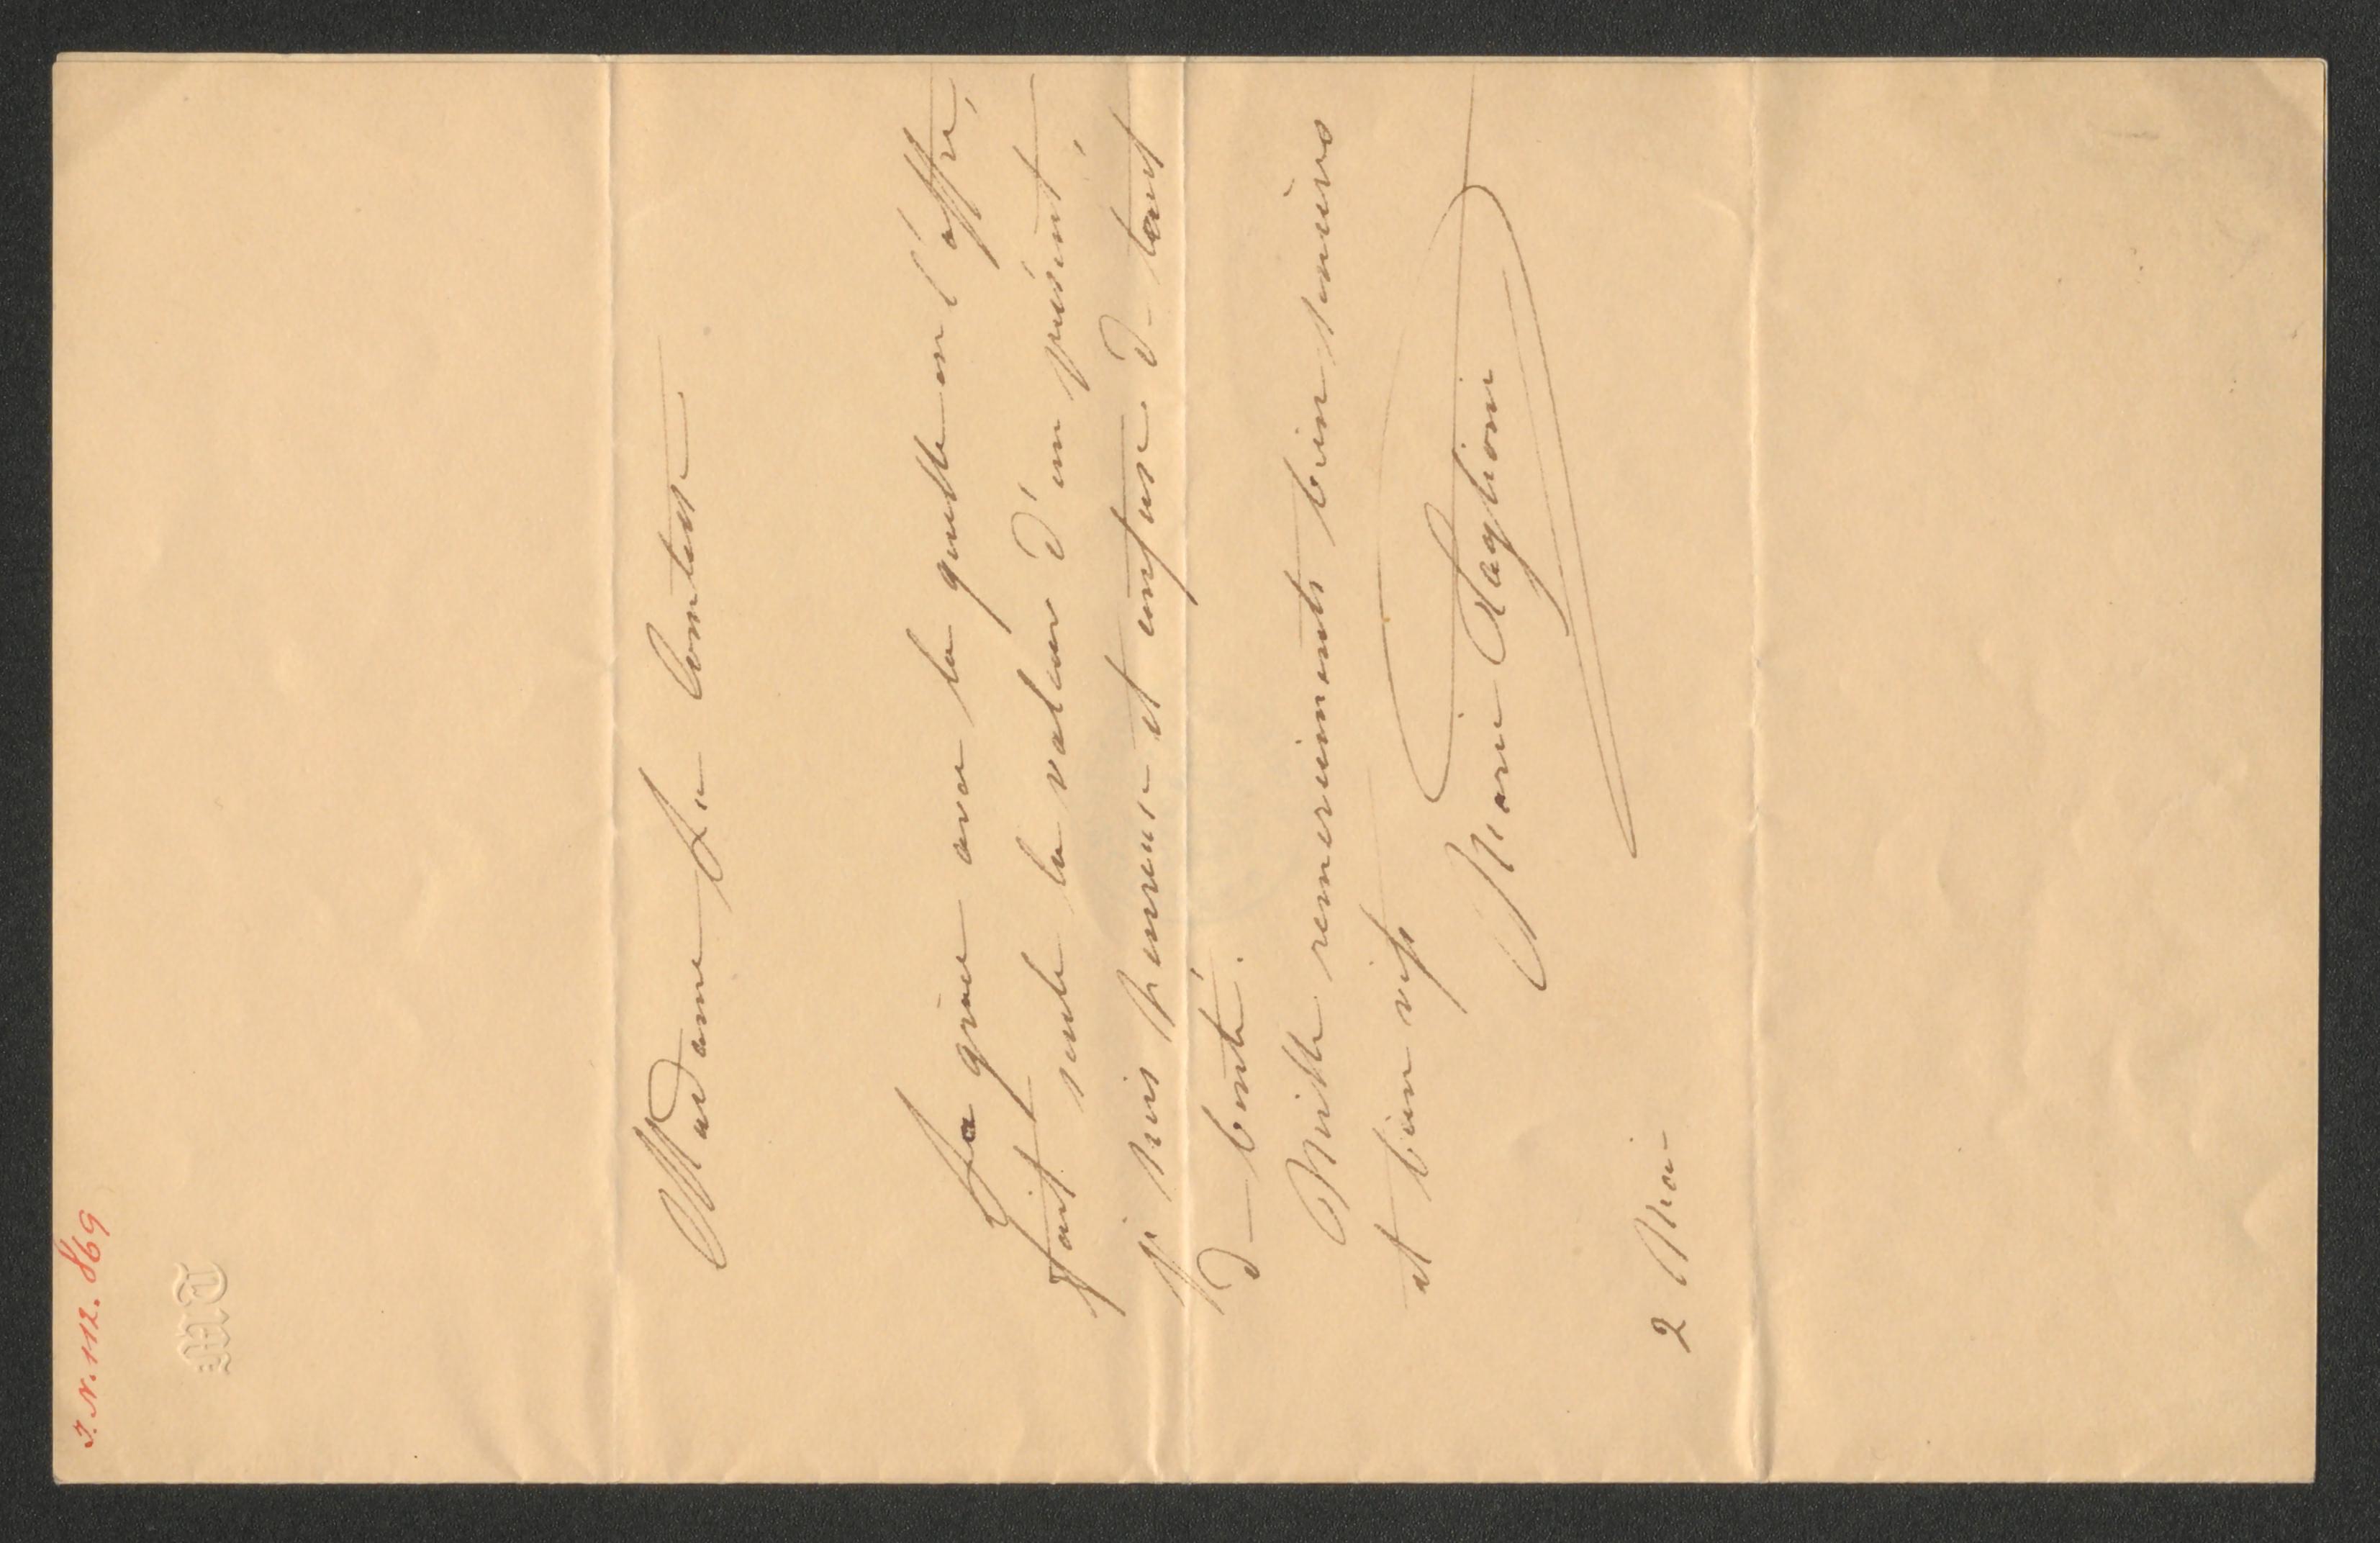 I. N. 112.869
MT
Madame La Comtesse
La grâce avec la quelle on l'offre,
fait seule la valeur d'un présent,
je suis heureuse et confuse de tant
de bonté.
Mille remerciments bien sincères
et bien vifs
Marie Taglioni
2 Mai